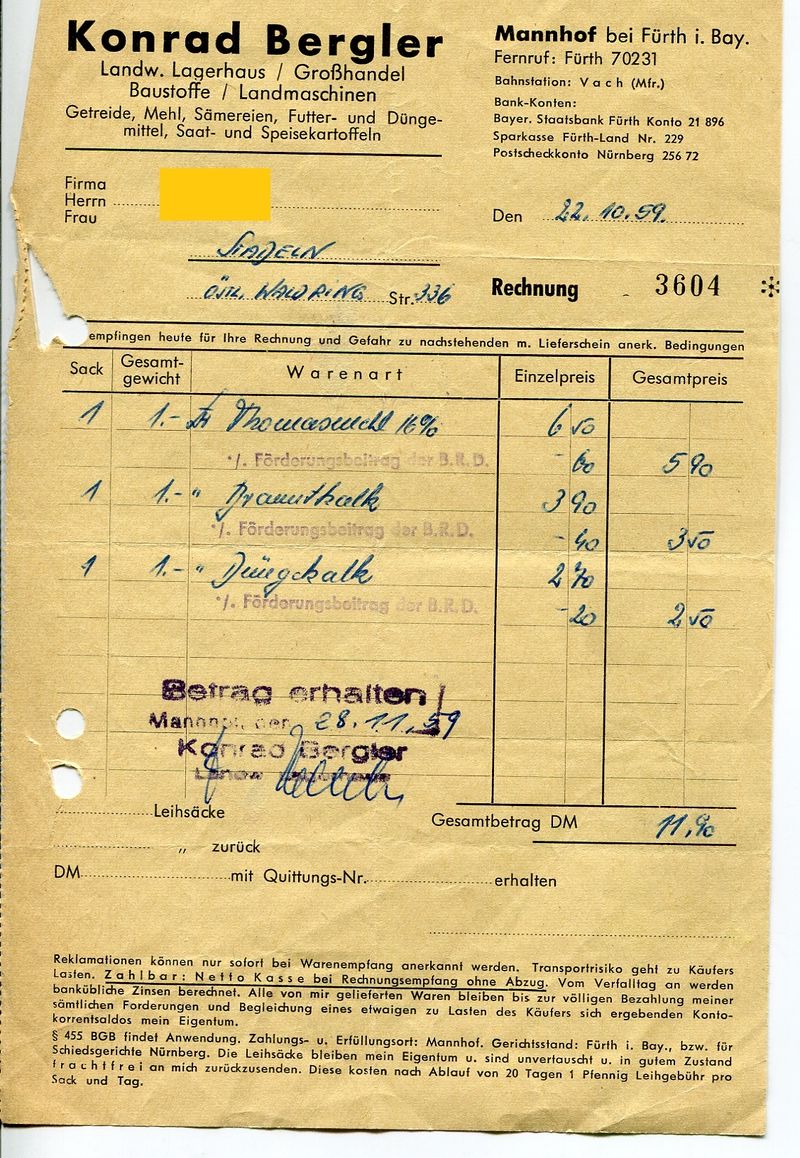 Konrad Bergler
Landw. Lagerhaus / Großhandel
Baustoffe / Landmaschinen
Getreide, Mehl, Sämereien, Futter- und Dünge-
mittel, Saat- und Speisekartoffeln
Mannhof bei Fürth i. Bay.
Fernruf: Fürth 70231
Bahnstation: Vach (Mfr.)
Bank-Konten:
Bayer. Staatsbank Fürth Konto 21 896
Sparkasse Fürth-Land Nr. 229
Postscheckkonto Nürnberg 256 72
Firma
Herrn
Frau
Den 22.10.59.
Stadeln
Östl. Waldring Str. 336
Rechnung 3604
empfingen heute für Ihre Rechnung und Gefahr zu nachstehenden m. Lieferschein anerk. Bedingungen
Sack Gesamt-gewicht Warenart Einzelpreis Gesamtpreis
1 1.- Thomasmehl 16% 6 50
·/. Förderungsbeitrag der B.R.D. -60 5 90
1 1.- " Branntkalk 3 90
·/. Förderungsbeitrag der B.R.D. -40 3 50
1 1.- " Düngekalk 2 70
·/. Förderungsbeitrag der B.R.D. -20 2 50
Betrag erhalten
Mannhof, den 28.11.59
Konrad Bergler
Landw.
Leihsäcke
Gesamtbetrag DM 11,90
„ zurück
DM mit Quittungs-Nr. erhalten
Reklamationen können nur sofort bei Warenempfang anerkannt werden. Transportrisiko geht zu Käufers
Lasten. Zahlbar: Netto Kasse bei Rechnungsempfang ohne Abzug. Vom Verfalltag an werden
bankübliche Zinsen berechnet. Alle von mir gelieferten Waren bleiben bis zur völligen Bezahlung meiner
sämtlichen Forderungen und Begleichung eines etwaigen zu Lasten des Käufers sich ergebenden Konto-
korrentsaldos mein Eigentum.
§ 455 BGB findet Anwendung. Zahlungs- u. Erfüllungsort: Mannhof. Gerichtsstand: Fürth i. Bay., bzw. für
Schiedsgerichte Nürnberg. Die Leihsäcke bleiben mein Eigentum u. sind unvertauscht u. in gutem Zustand
frachtfrei an mich zurückzusenden. Diese kosten nach Ablauf von 20 Tagen 1 Pfennig Leihgebühr pro
Sack und Tag.